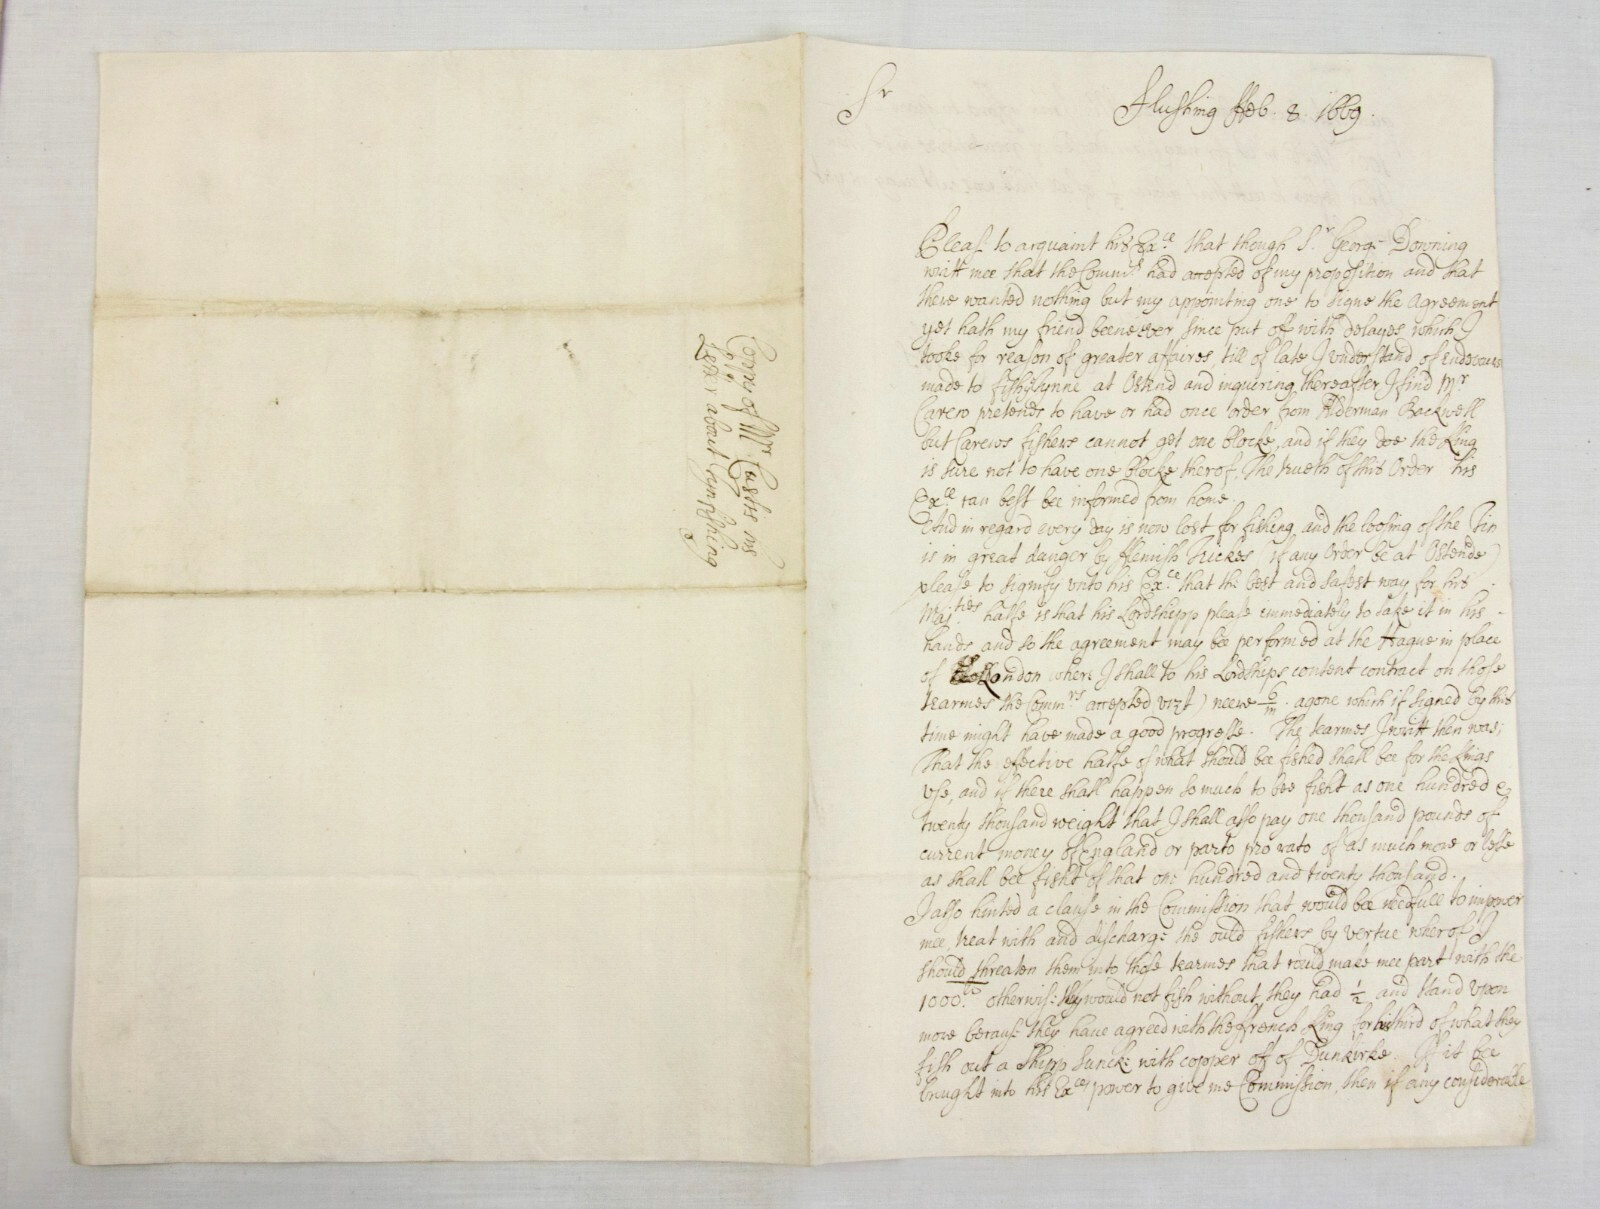 Copie of Mr Custis his
Letter about Tynn fishing
Sr
Flushing ffeb. 8. 1669.
Please to acquaint his Exce. that though Sr. George Downing
writt mee that the Commrs had accepted of my proposition and that
there wanted nothing but my appointing one to signe the Agreement
yet hath my friend beene ever since put off with delayes which I
tooke for reason of greater affaires, till of late I understand of endeavours
made to fish tynne at Ostend and inquiring thereafter I find Mr
Carew pretends to have or had once order from Alderman Backwell
but Carews fishers cannot get one blocke, and if they doe the King
is sure not to have one blocke therof, The trueth of this Order his
Exce. can best bee informed from home.
And in regard every day is now lost for fishing and the loosing of the Tin
is in great danger by fflemish Trickes (if any Order be at Ostende)
please to signify unto his Exce. that the best and safest way for his
Majties halfe is that his Lordshipp please immediately to take it in his
hands and so the agreement may bee performed at the Hague in place
of London where I shall to his Lordships content contract on those
tearmes the Commrs accepted vizt) neere 6/m. agone which if signed by this
time might have made a good progresse. The tearmes I writt then was;
That the effective halfe of what should bee fished shall bee for the Kings
use, and if there shall happen so much to bee fisht as one hundred &
twenty thousand weight that I shall also pay one thousand pounds of
current money of England or parto pro rato of as much more or lesse
as shall bee fisht of that one hundred and twenty thousand.
I also hinted a clause in the Commission that would bee needfull to impower
mee, treat with and discharge the ould fishers by vertue wherof I
should threaten them into those tearmes that could make mee part with the
1000.ll otherwise they would not fish without they had ½ and stand upon
more because they have agreed with the ffrench King for a third of what they
fish out a shipp sunck: with copper off of Dunkirke. If it bee
brought into his Exces power to give me Commission, then if any considerable